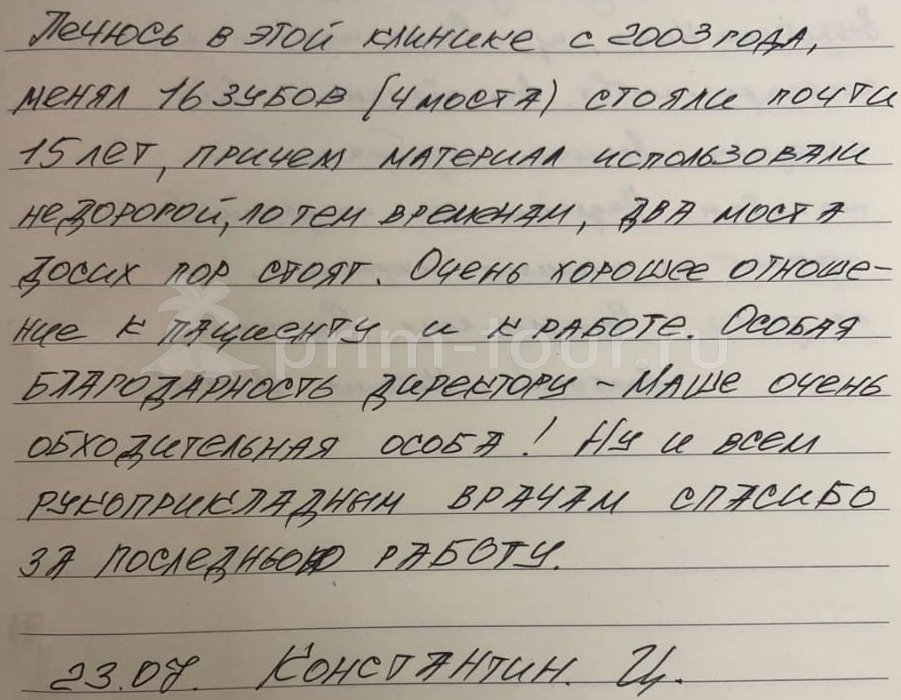 Лечюсь в этой клинике с 2003 года,
менял 16 зубов (4 моста) стояли почти
15 лет, причем материал использовали
недорогой, по тем временам, два моста
досих пор стоят. Очень хорошее отноше-
ние к пациенту и к работе. Особая
prim-tour.ru
благодарность директору - Маше очень
обходительная особа! Ну и всем
рукоприкладным врачам спасибо
за последнюю работу.
23.07. Константин. Ц.